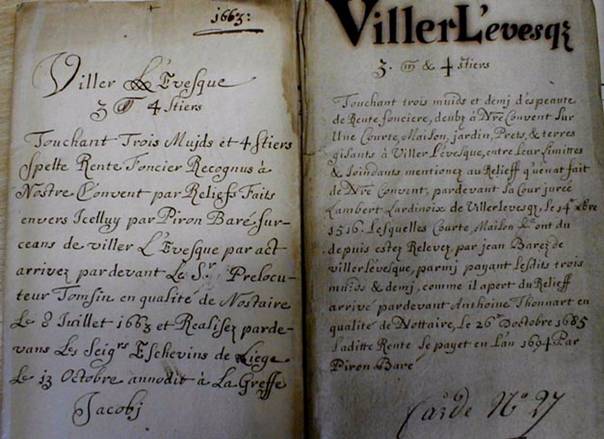 1663:
Viller L'Evesque
3 m 4 Stiers
Touchant Trois Mujds et 4 Stiers
Spelte Rente Foncier Recognus à
Nostre Convent par Reliefs Faits
envers Icelluy par Piron Baré sur-
ceans de viller L'Evesque par act
arrivez pardevant Le Sr. Prelocu-
teur Tomsin en qualité de Nostaire
Le 8 Juillet 1663 et Realisez parde-
vans Les Seigrs Eschevins de Liege
Le 13 Octobre annodit à La Greffe
Jacobj
Viller L'evesqz
3. m & 4 stiers
Touchant trois muids et demj d'espeaute
de Rente fonciere, deubz à Nre Convent sur
Une Courte, Maison, jardin, Prets, & terres
gisants à Viller L'evesque, entre leur Limittes
& Joindants mentionez au Relieff qu'en at fait
de Nre Convent, pardevant sa Cour jurée
Lambert Lardinoix de Villerlevesqz, Le 14e xbre
1516. Lesquelles Courte Maison Lont du
depuis estez Relevez par jean Barez de
villerlevesque, parmj payant Lesdits trois
muids & demj, comme il apert du Relieff
arrivé pardevant Anthoine Thonnart en
qualité de Nottaire, Le 26e D'octobre 1685
Laditte Rente se payet en Lan 1694 Par
Piron Baré
Carde No 27